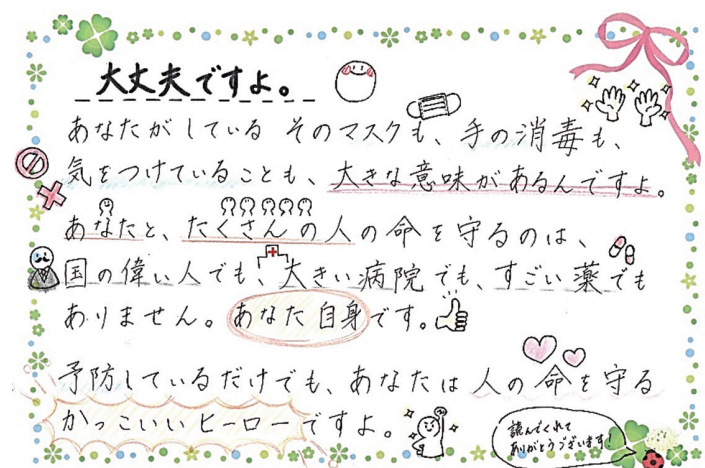 大丈夫ですよ。
あなたがしている そのマスクも、手の消毒も、
気をつけていることも、大きな意味があるんですよ。
あなたと、たくさんの人の命を守るのは、
国の偉い人でも、大きい病院でも、すごい薬でも
ありません。あなた自身です。
予防しているだけでも、あなたは人の命を守る
かっこいいヒーローですよ。
読んでくれて
ありがとうございます!